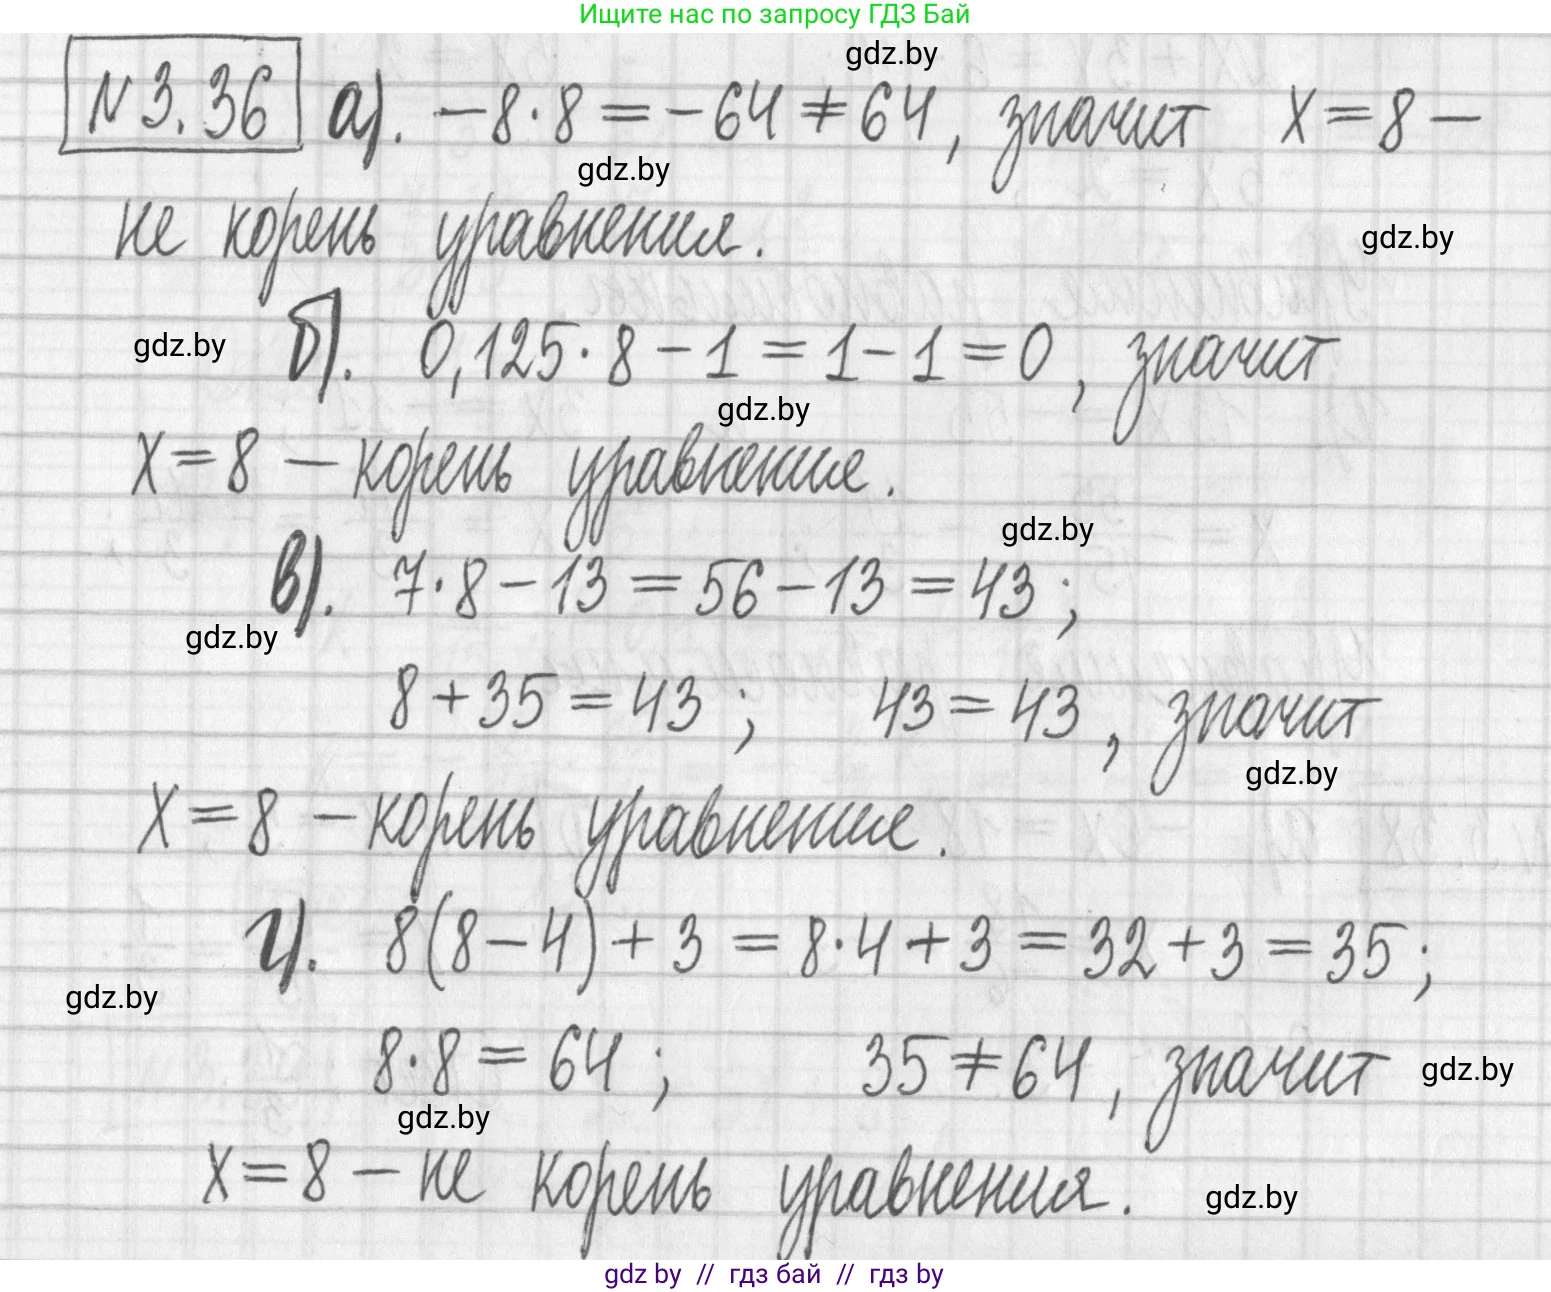 Ищите нас по запросу ГДЗ Бай
gdz.by
№3.36 а). -8·8=-64≠64, значит x=8 -
gdz.by
не корень уравнения.
gdz.by
gdz.by б). 0,125·8-1=1-1=0, значит
gdz.by
x=8 - корень уравнения.
gdz.by
в). 7·8-13=56-13=43;
gdz.by
8+35=43; 43=43, значит
gdz.by
x=8 - корень уравнения.
г). 8(8-4)+3=8·4+3=32+3=35;
gdz.by
8·8=64; 35≠64, значит gdz.by
gdz.by
x=8 - не корень уравнения. gdz.by
gdz by // гдз бай // гдз by